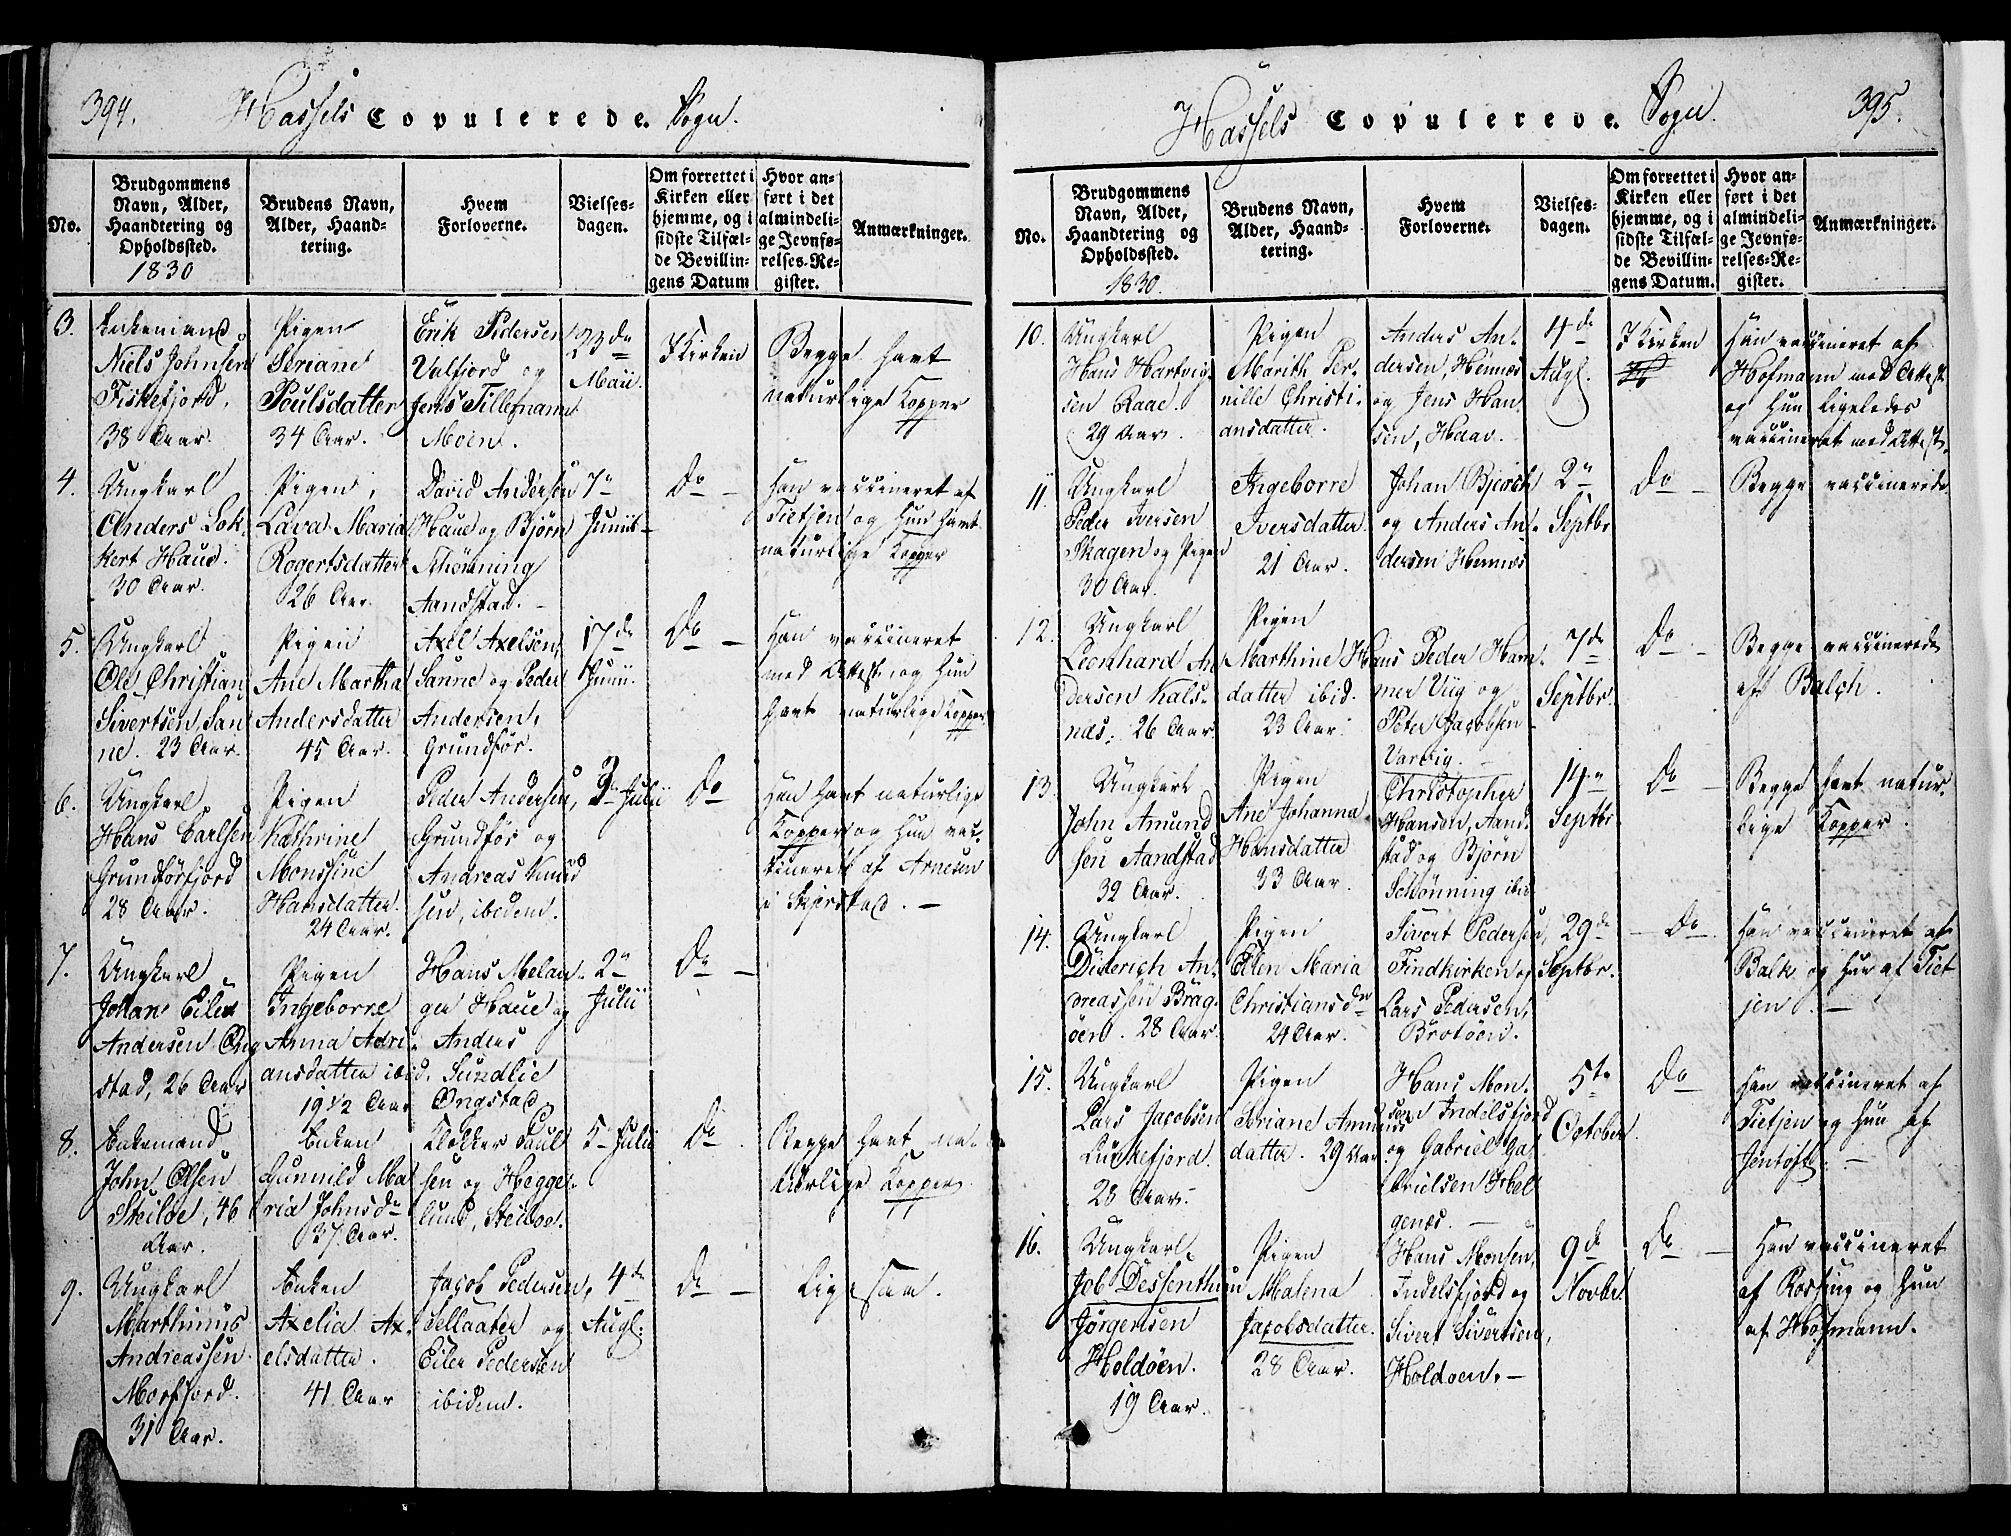 394. Hassels Copulerede. Sogn.
No.
Brudgommens
Navn, Alder,
Haandtering og
Opholdssted.
1830
Brudens Navn,
Alder, Haand-
tering.
Hvem
Forloverne.
Vielses-
dagen.
Om forrettet i
Kirken eller
hjemme, og i
sidste Tilfæl-
de Bevillin-
gens Datum
Hvor an-
ført i det
almindeli-
ge Jevnfø-
relses-Re-
gister.
Anmærkninger.
3.
Enkemand
Niels Johnsen
Fiskefjord.
38 Aar.
Pigen
Seriane
Poulsdatter
34 Aar.
Erik Pedersen
Valfjord og
Jens Tillemann
Moen.
23de
Maii.
I Kirken
Begge havt
naturlige Kopper
4.
Ungkarl
Anders Lok-
kert Haue.
30 Aar.
Pigen
Lava Maria
Rogertsdatter
26 Aar.
David Andersen
Haue og Björn
Schönning
Aandstad. -
7de
Junii
Do -
Han vaccineret af
Tietjen og Hun havt
naturlige Kopper
5.
Ungkarl
Ole Christian
Sivertsen San-
ne. 23 Aar.
Pigen
Ane Martha
Andersdatter
45 Aar.
Axel Axelsen,
Sanne og Peder
Andersen,
Grundför.
17de
Junii.
Do -
Han vaccineret
med Attest, og Hun
havt naturlige Kopper
6.
Ungkarl
Hans Carlsen
Grundförfjord
28 Aar.
Pigen
Kathrine
Monssine
Hansdatter.
24 Aar.
Peder Andersen,
Grundför og
Andreas Knud
sen, ibidem.
2de Julii
Do
Han havt naturlige
Kopper og Hun vac-
cineret af Arnesen
i Skjerstad. -
7.
Ungkarl
Johan Eiler
Andersen Ong
stad, 26 Aar
Pigen
Ingeborre
Anna Adri-
ansdatter ibid.
19 1/2 Aar
Hans Melan-
ger Haue og
Anders
Sundlie
Ongstad
2de
Julii
Do -
8.
Enkemand
John Olsen
Steiloe, 46
Aar.
Enken
Gunnild Ma
ria Johnsdr
37 Aar.
Klokker Paul
sen og Hegge-
lund, Steiloe.
5te Julii
Do
Begge havt na-
turlige Kopper.
9.
Ungkarl
Marthinus
Andreassen
Morfjord.
31 Aar.
Enken
Axelia Ax-
elsdatter.
41 Aar
Jacob Pedersen,
Sellaater og
Eiler Pedersen
ibidem.
4de
Augl.
Do -
Ligesaa.
Hassels Copulerede. Sogn. 395.
No.
Brudgommens
Navn, Alder,
Haandtering og
Opholdssted.
1830.
Brudens Navn,
Alder, Haand-
tering.
Hvem
Forloverne.
Vielses-
dagen.
Om forrettet i
Kirken eller
hjemme, og i
sidste Tilfæl-
de Bevillin-
gens Datum.
Hvor an-
ført i det
almindeli-
ge Jevnfø-
relses-Re-
gister.
Anmærkninger.
10.
Ungkarl
Hans Hartvig-
sen Raae.
29 Aar.
Pigen
Marith Per-
nille Christi-
ansdatter.
Anders An-
dersen, Hennæs
og Jens Han-
sen, Haav.
4de
Augl.
I Kirken
Han vaccineret af
Hofmann med Attest
og Hun ligeledes
vaccineret med Attest.
11
Ungkarl
Peder Iversen
Skagen og Pigen
30 Aar.
Ingeborre
Iversdatter
21 Aar.
Johan Bjerch
og Anders An-
dersen Hennæs
2de
Septbr
Do -
Begge vaccinerede
12.
Ungkarl
Leonhard An
dersen Kals-
næs. 26 Aar
Pigen
Marthine Hans
datter ibid.
23 Aar.
Peder Ham-
mer Viig og
Peter Jacobsen
Varvig. -
7de
Septbr.
Do -
Begge vaccinerede
af Balch.
13.
Ungkarl
John Amund
sen Aandstad
32 Aar.
Pigen
Ane Johanna
Hansdatter
33 Aar.
Christopher
Hansen, Aand-
stad og Björn
Schönning ibid
14de
Septbr
Do -
Begge havt natur-
lige Kopper.
14.
Ungkarl
Diderich An-
dreassen Brag-
öen. 28 Aar.
Pigen
Elen Maria
Christiansdr
24 Aar.
Sivert Pedersen,
Findkirken og
Lars Pedersen,
Brotöen.
29de
Septbr.
- Do -
Han vaccineret af
Balk og Hun af Tiet
jen. -
15.
Ungkarl
Lars Jacobsen
Lürkefjord.
23 Aar.
Pigen
Seriane Amunds
datter. 29 Aar
Hans Mon-
sen Indelsfjord
og Gabriel Ga-
brielsen Hel
genæs. -
5te
October
Do
Han vaccineret af
Tietjen og Hun af
Jentoft. -
16.
Ungkarl
Job Dessenthun
Jörgensen
Holdöen.
19 Aar.
Pigen
Malena
Jacobsdatter.
28 Aar.
Hans Monsen,
Indelsfjord og
Sivert Sivertsen,
Holdoen. -
9de
Novbr
Do -
Han vaccineret
af Rossing og Hun
af Hofmann.